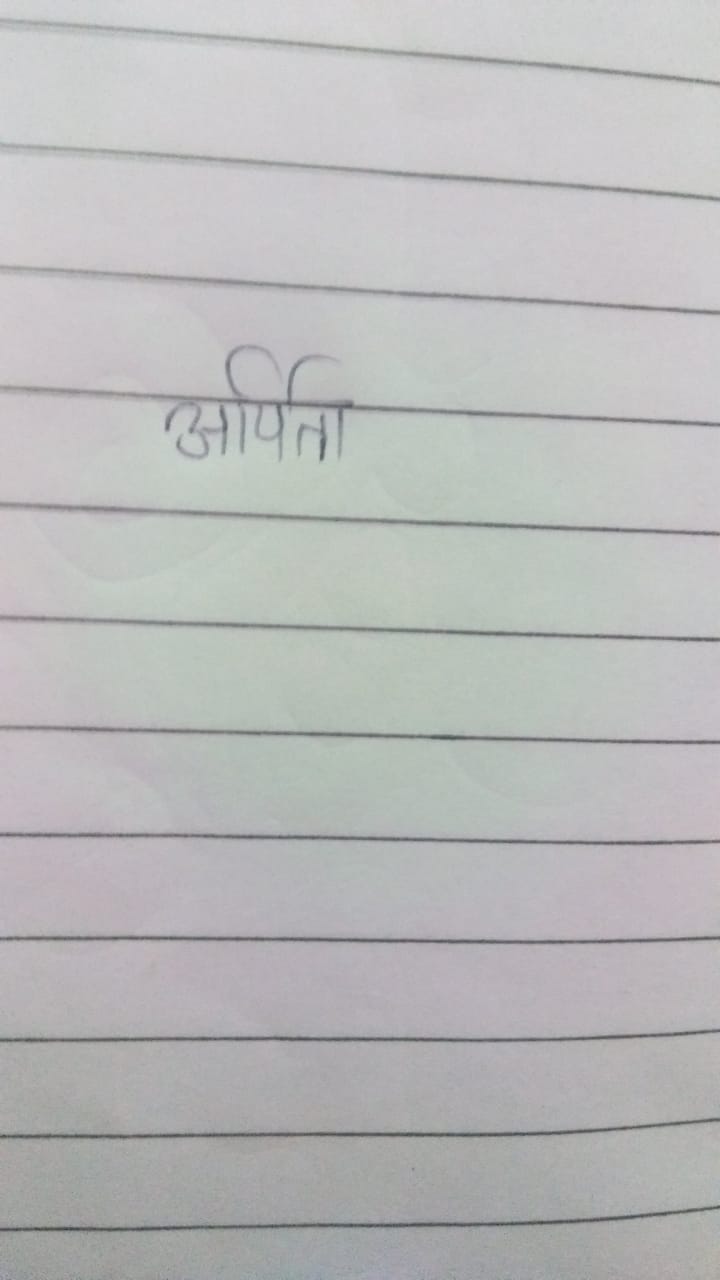 अर्पिता